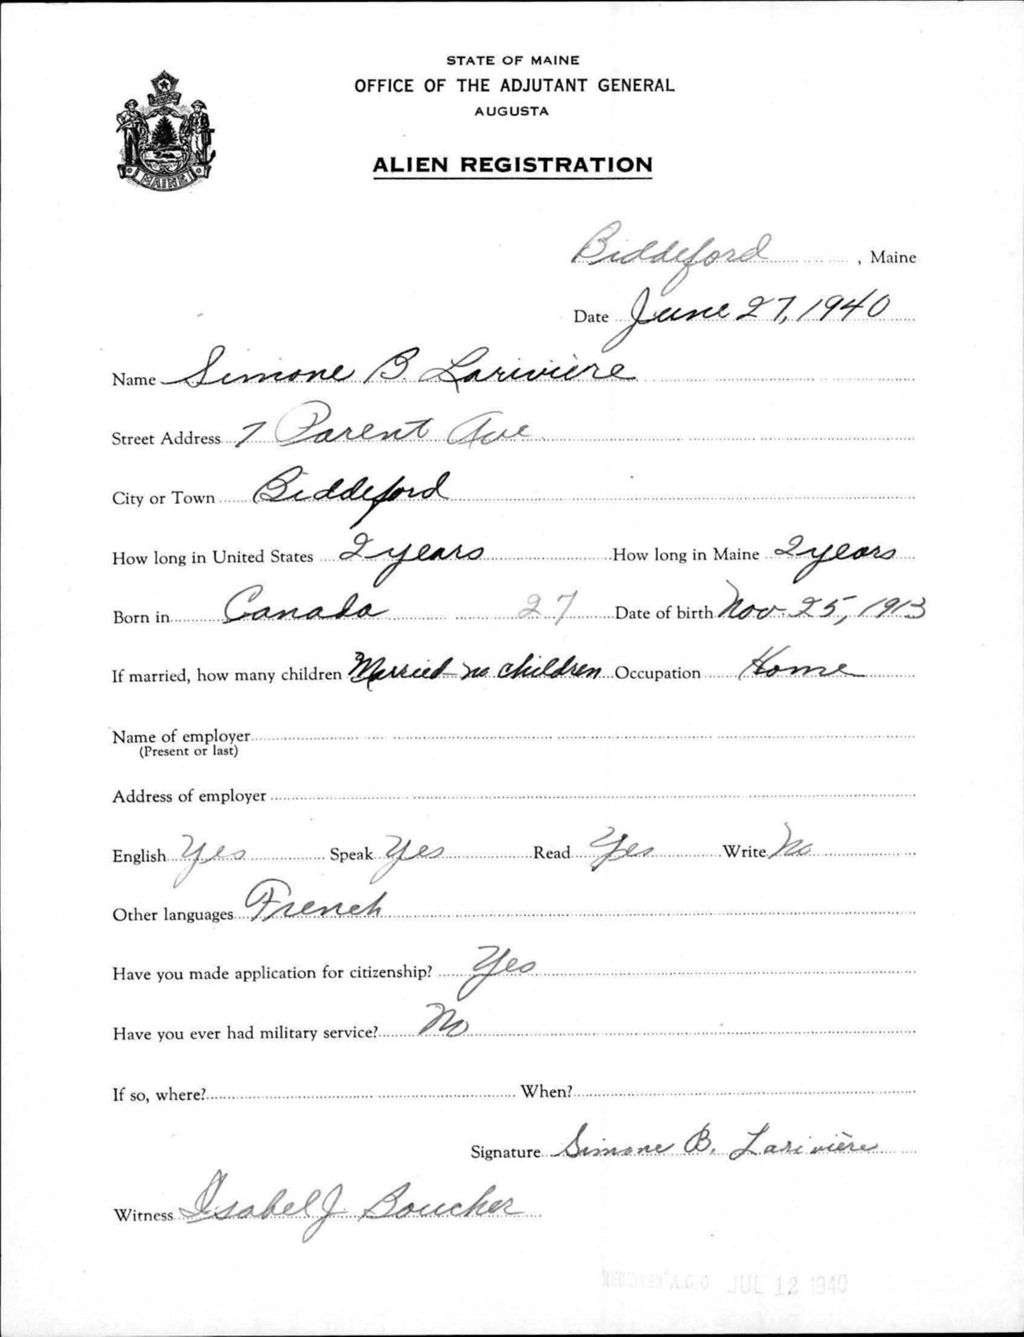 STATE OF MAINE
OFFICE OF THE ADJUTANT GENERAL
AUGUSTA
ALIEN REGISTRATION
MAINE
Biddeford, Maine
Date June 27, 1940
Name Simone B. Larivière
Street Address 7 Parent Ave
City or Town Biddeford
How long in United States 2 years How long in Maine 2 years
Born in Canada 27 Date of birth Nov. 25, 1913
If married, how many children Married no children Occupation Home
Name of employer
(Present or last)
Address of employer
English Yes Speak Yes Read Yes Write No
Other languages French
Have you made application for citizenship? Yes
Have you ever had military service? No
If so, where? When?
Signature Simone B. Larivière
Witness Isabel J. Boucher
RECEIVED A.G.O. JUL 12 1940